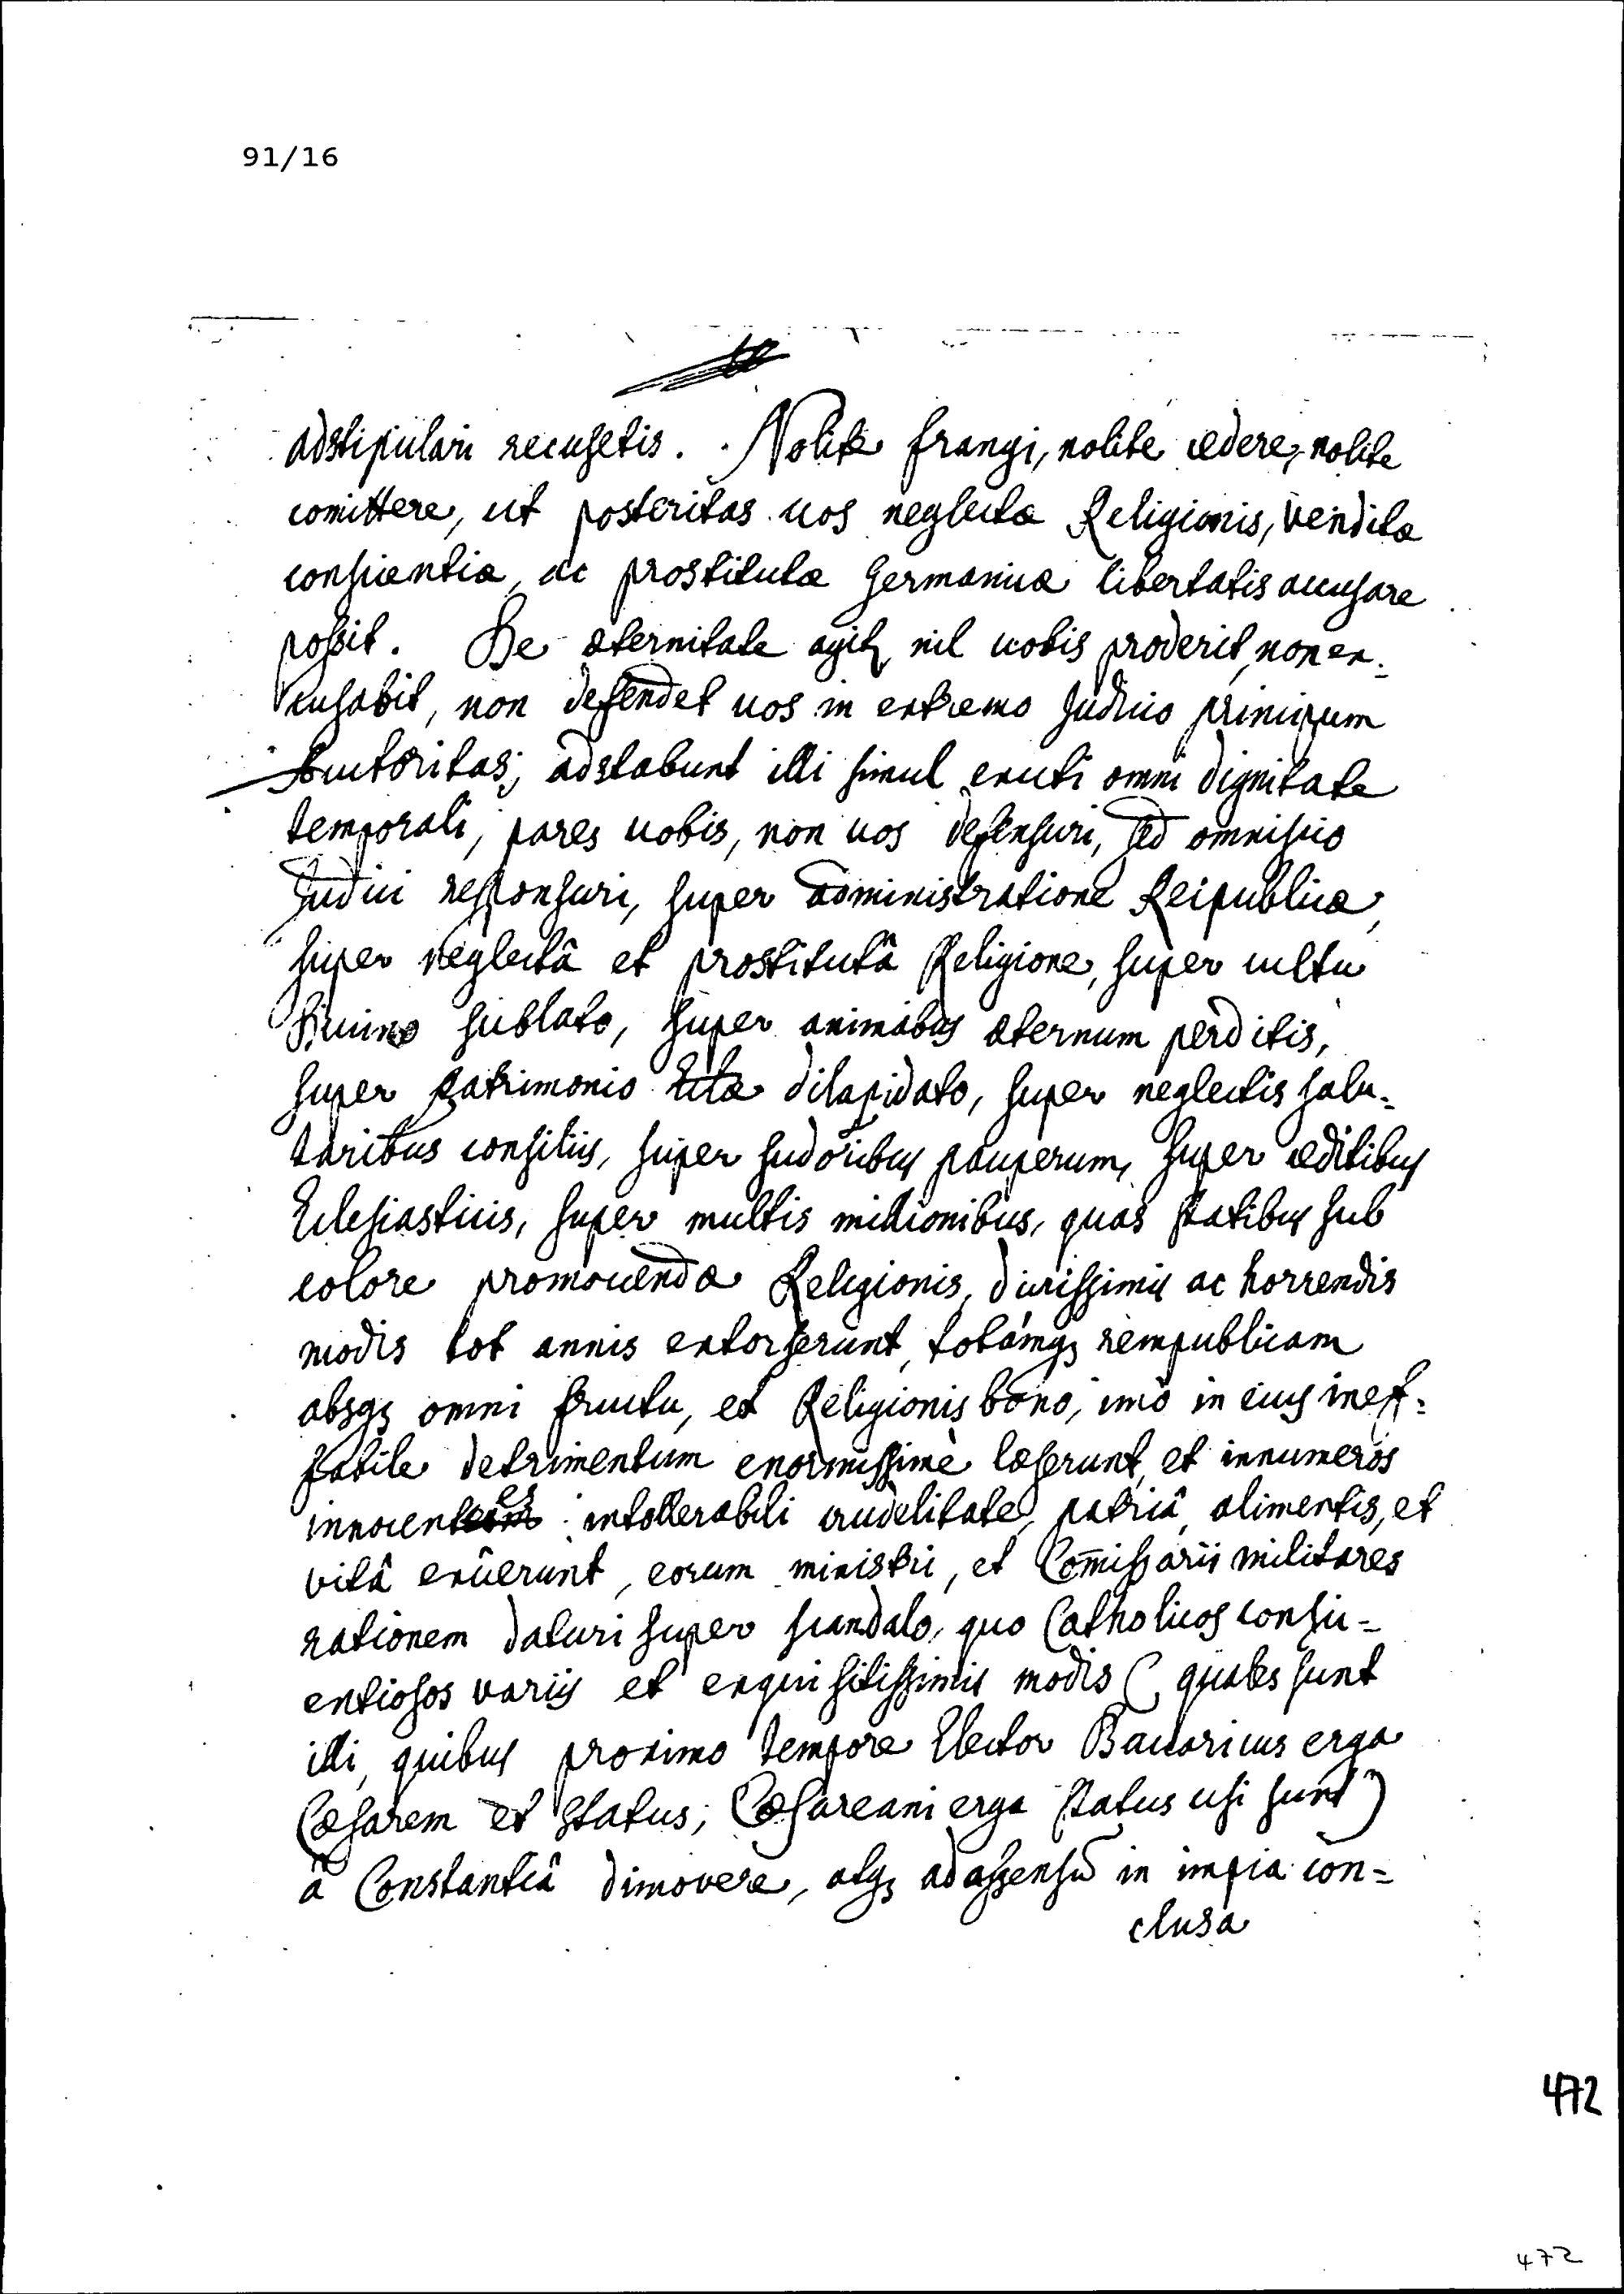 91/16
adstipulari recusetis. Nolite frangi, nolite cedere, nolite
comittere, ut posteritas uos neglectæ Religionis, venditæ
conscientiæ, ac prostitutæ Germanicæ libertatis accusare
possit. De æternitate agitr, nil uobis proderit, non ex-
cusabit, non defendet uos in extremo Judicio principum
Auctoritas; adstabunt illi simul exuti omni dignitate
temporali, pares uobis, non uos defensuri, sed omniscio
Judici responsuri, super administratione Reipublicæ,
super neglectâ et prostitutâ Religione, super cultu
Diuino sublato, super animabus æternum perditis,
super patrimonio dilapidato, super neglectis salu-
taribus consiliis, super sudoribus pauperum, super reditibus
Ecclesiasticis, super multis millionibus, quas statibus sub
colore promouendæ Religionis, durissimis ac horrendis
modis tot annis extorserunt, totámq; rempublicam
absq; omni fructu, et Religionis bono, imò in eius inef-
fabile detrimentum enormissimè læserunt, et innumeros
innocentes intollerabili crudelitate, patriâ, alimentis, et
vitâ exûerunt, eorum ministri, et Com̄issarii militares
rationem daturi super scandalo, quo Catholicos consci-
entiosos variis et exquisitissimis modis (quales sunt
illi, quibus proximo tempore Elector Bauaricus erga
Cæsarem et Status; Cæsareani erga status usi sunt)
â Constantiâ dimovere, atq; ad assensū in impia con-
clusa
472
472